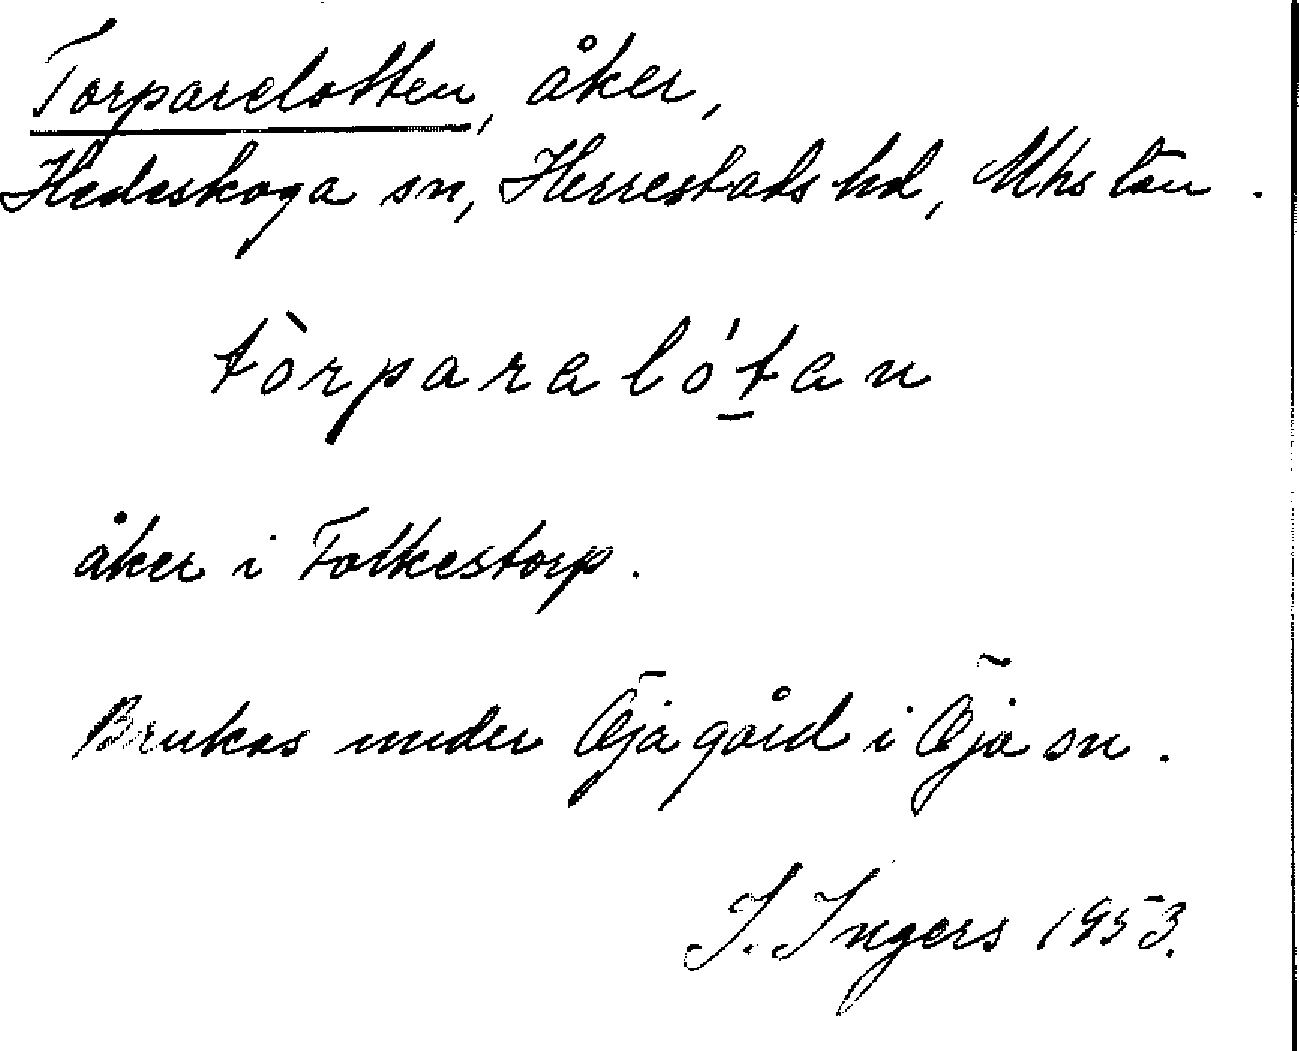 Torparelotten, åker,
Hedeskoga sn, Herrestads hd, Mhs län.
tòrparalótan
åker i Folkestorp.
Brukas under Öja gård i Öja sn.
I. Ingers 1953.